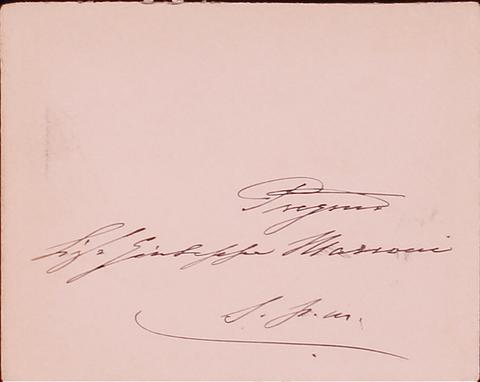 Pregmo
Sigr Giuseppe Marroni
S. P. M.